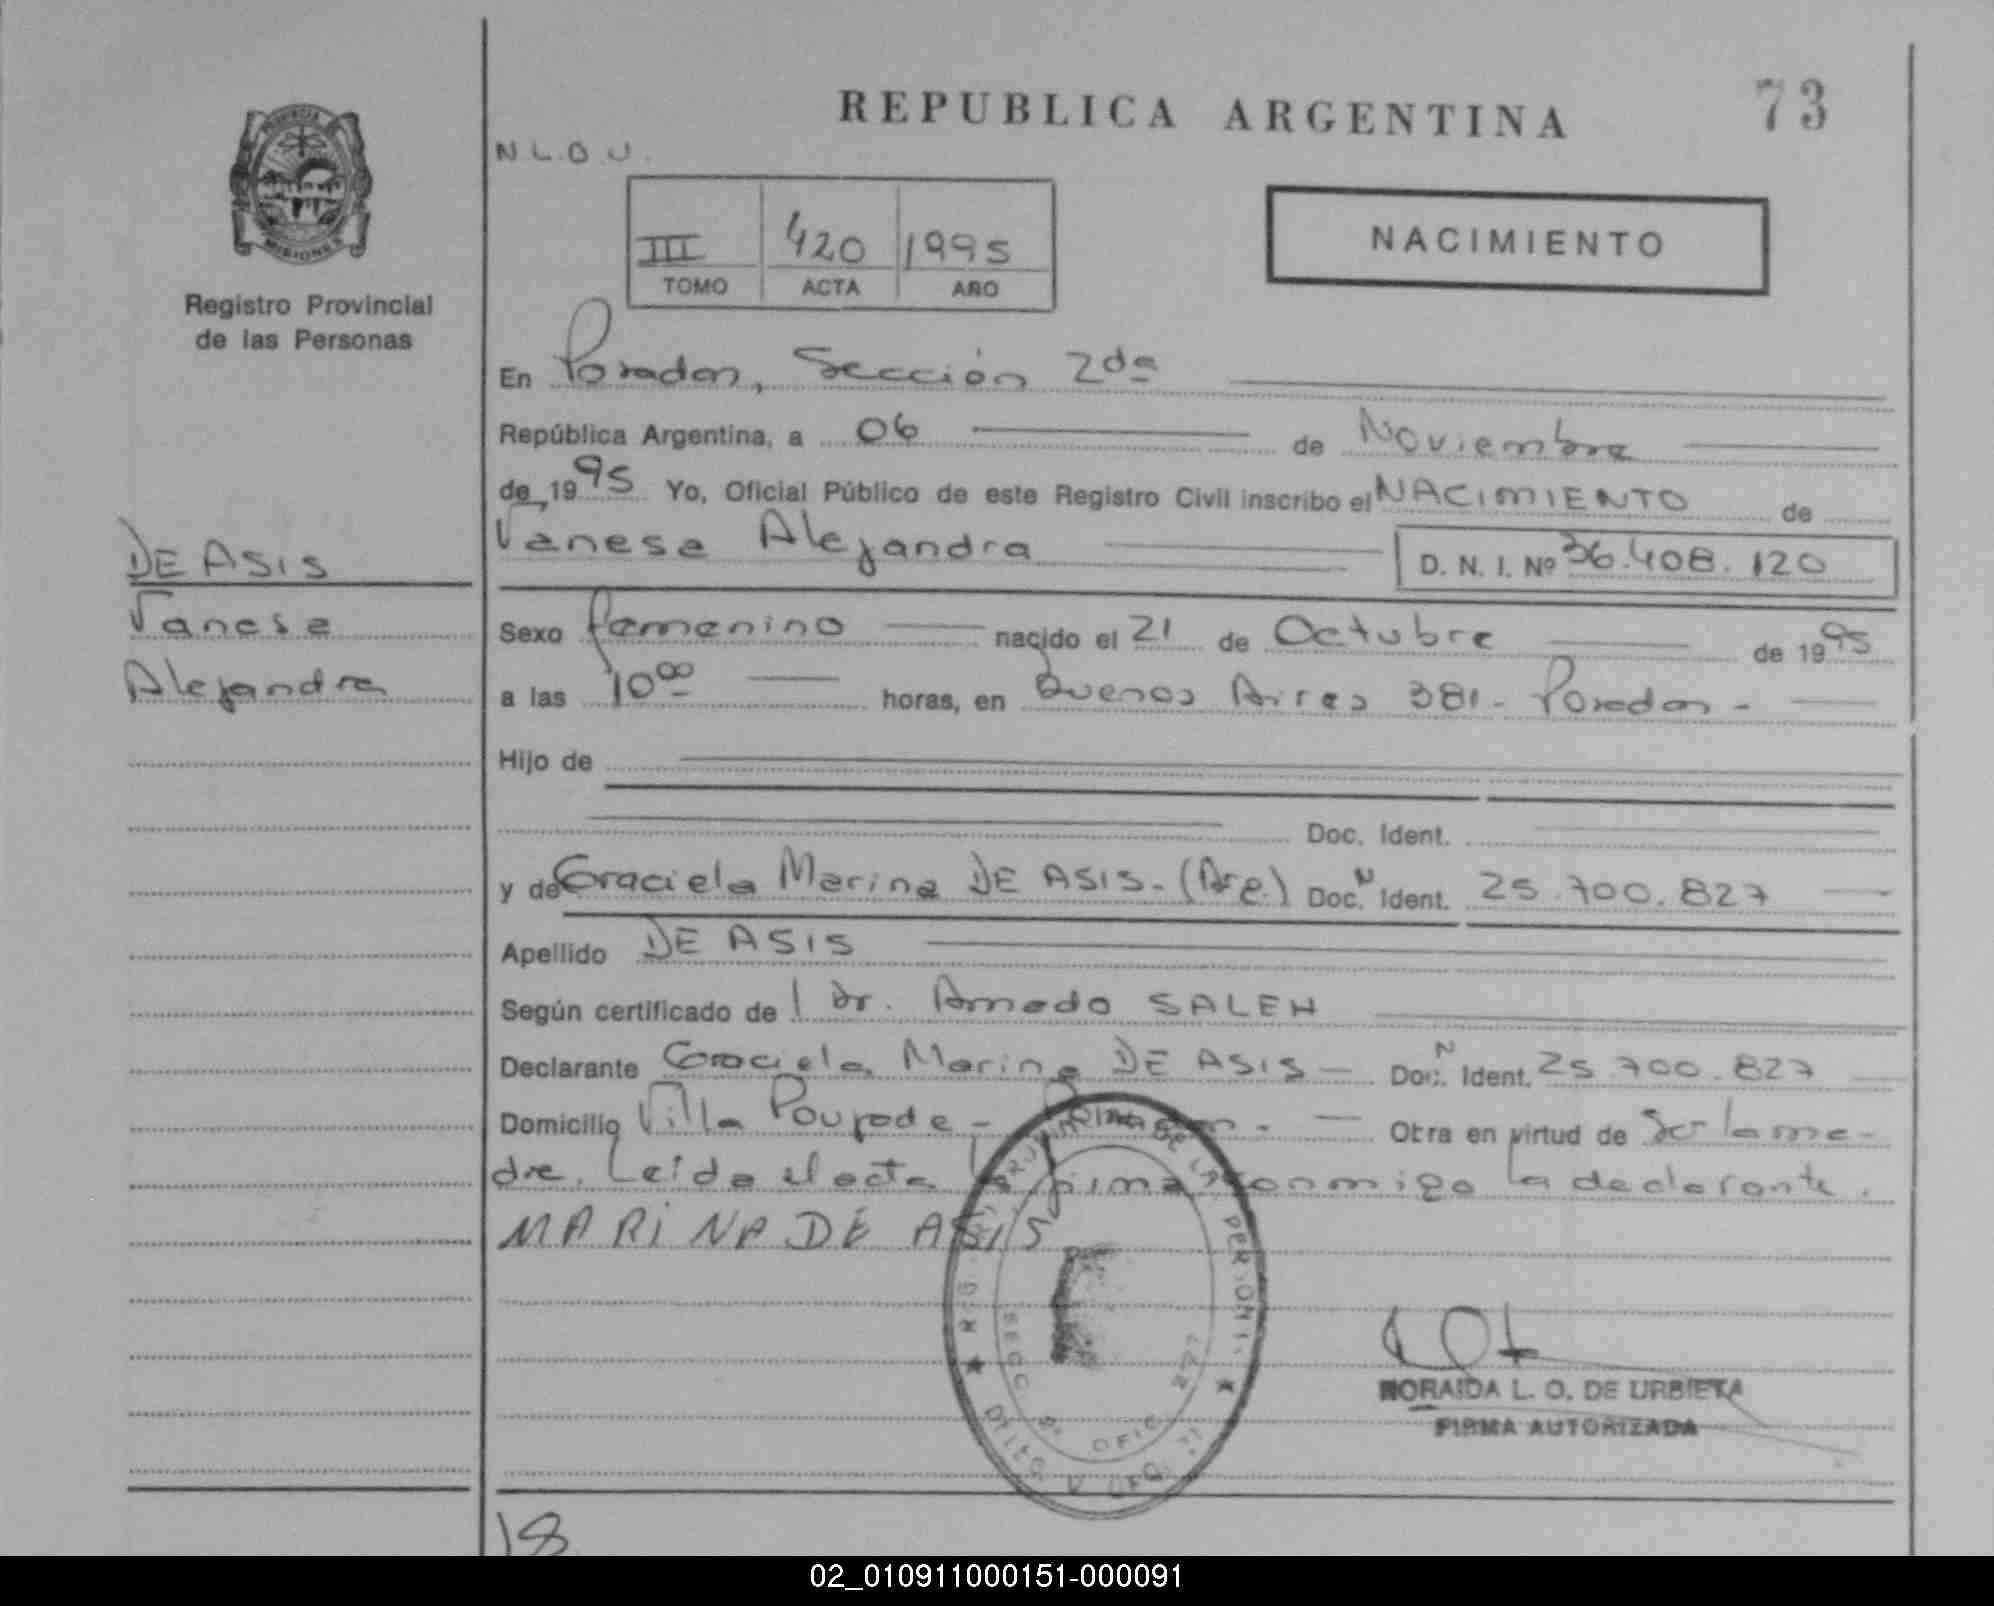 REPUBLICA ARGENTINA
73
PROVINCIA DE
MISIONES
Registro Provincial
de las Personas
N.L.O.U.
III 420 1995
TOMO ACTA AÑO
NACIMIENTO
En Posadas, Sección 2da
República Argentina, a 06 de Noviembre
de 1995 Yo, Oficial Público de este Registro Civil inscribo el NACIMIENTO de
Vanesa Alejandra
D. N. I. Nº 36.408.120
DE ASIS
Vanesa
Alejandra
Sexo femenino nacido el 21 de Octubre de 1995
a las 10ºº horas, en Buenos Aires 381 - Posadas -
Hijo de
Doc. Ident.
y de Graciela Marina DE ASIS - (Arg.) Doc. N Ident. 25.700.827
Apellido DE ASIS
Según certificado de l Dr. Amado SALEH
Declarante Graciela Marina DE ASIS - Doc. N Ident. 25.700.827
Domicilio Villa Poujade - Posadas - Obra en virtud de Ser la ma-
dre. Leída el acta la firma conmigo la declarante.
MARINA DE ASIS
SECC. 2ª OFIC. 277
NORAIDA L. O. DE URBIETA
FIRMA AUTORIZADA
18
02_010911000151-000091